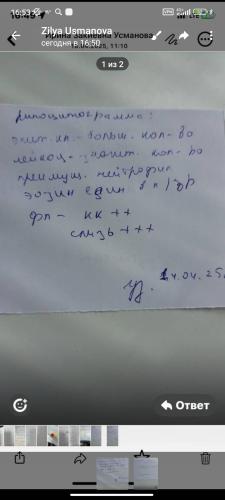 16:53
Zilya Usmanova
сегодня в 16:50
Ирина Закиевна Усманова
11:10
1 из 2
Риноцитограмма:
эпит. кл. - больш. кол-во
лейкоц - значит. кол-во
преимущ. нейтрофил
эозин един в п/зр
фл - кк ++
слизь +++
14.04.25
Ответ